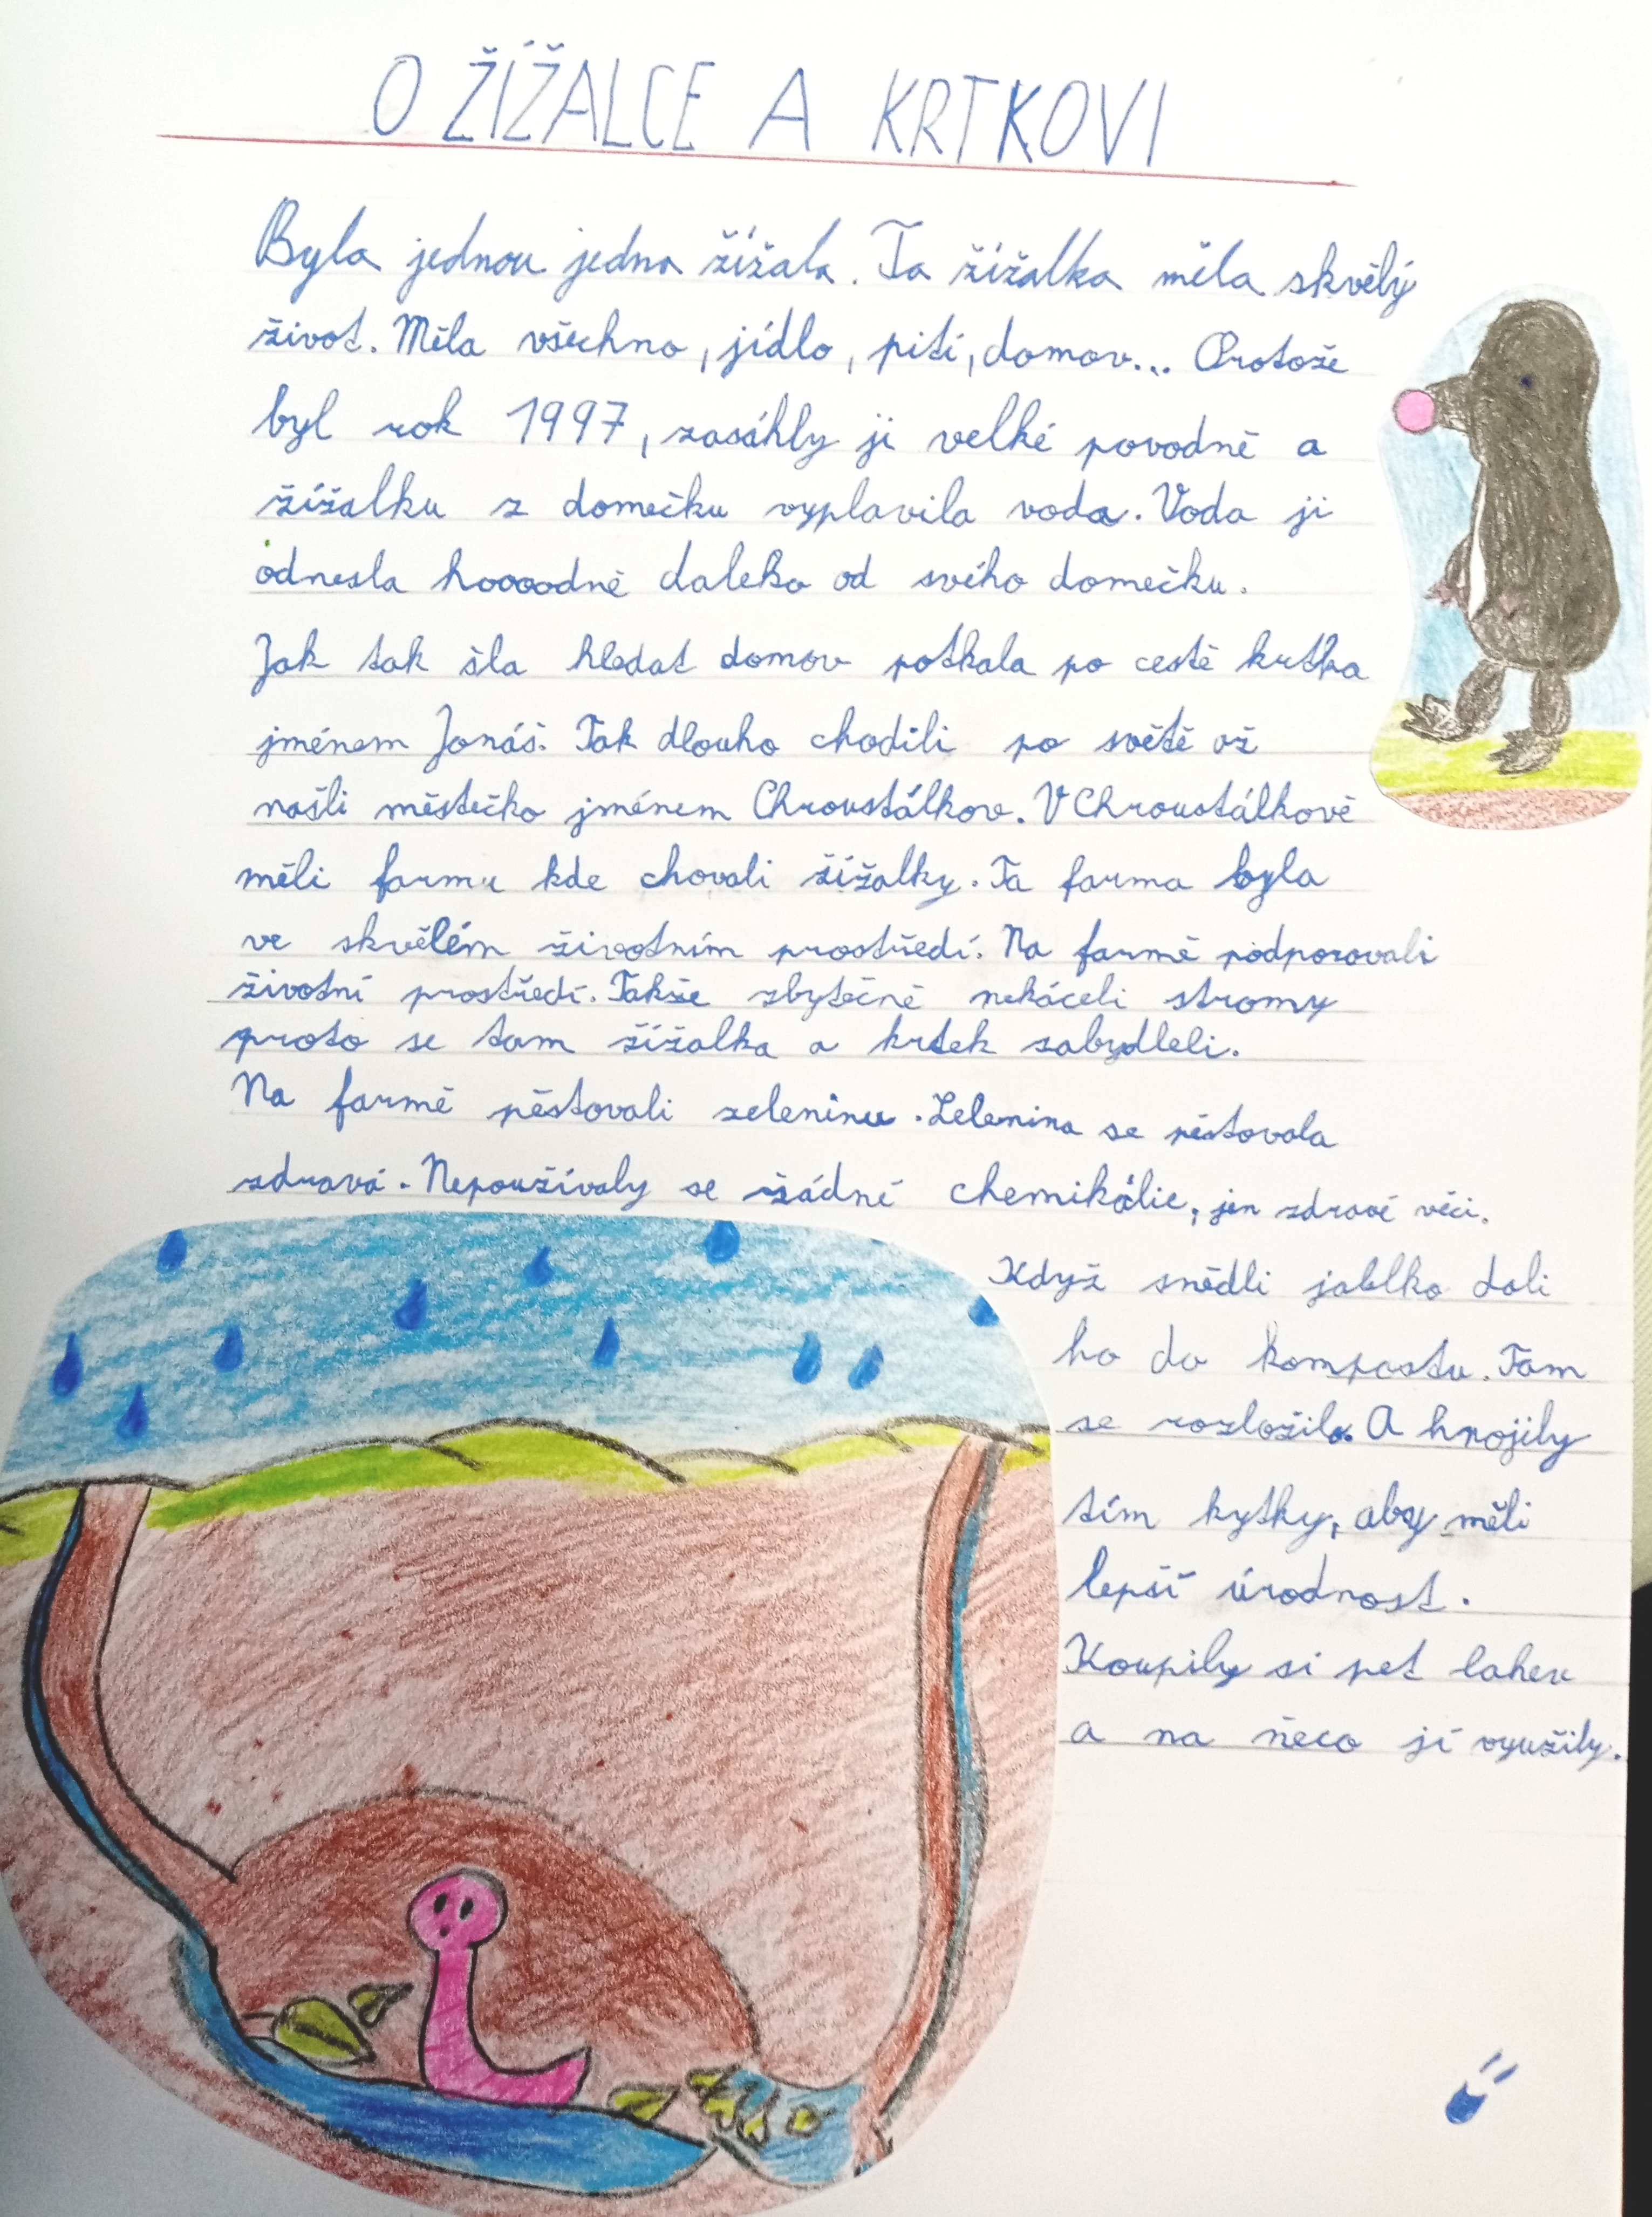 O ŽÍŽALCE A KRTKOVI
Byla jednou jedna žížala. Ta žížalka měla skvělý
život. Měla všechno, jídlo, pití, domov... Protože
byl rok 1997, zasáhly ji velké povodně a
žížalku z domečku vyplavila voda. Voda ji
odnesla hoooodně daleko od svého domečku.
Jak tak šla hledat domov potkala po cestě krtka
jménem Jonáš. Tak dlouho chodili po světě až
našli městečko jménem Chroustálkov. V Chroustálkově
měli farmu kde chovali žížalky. Ta farma byla
ve skvělém životním prostředí. Na farmě podporovali
životní prostředí. Takže zbytečně nekáceli stromy
proto se tam žížalka a krtek zabydleli.
Na farmě pěstovali zeleninu. Zelenina se pěstovala
zdravá. Nepoužívaly se žádné chemikálie, jen zdravé věci.
Když snědli jablko dali
ho do kompostu. Tam
se rozložilo. A hnojily
tím kytky, aby měli
lepší úrodnost.
Koupily si pet lahev
a na něco jí využily.